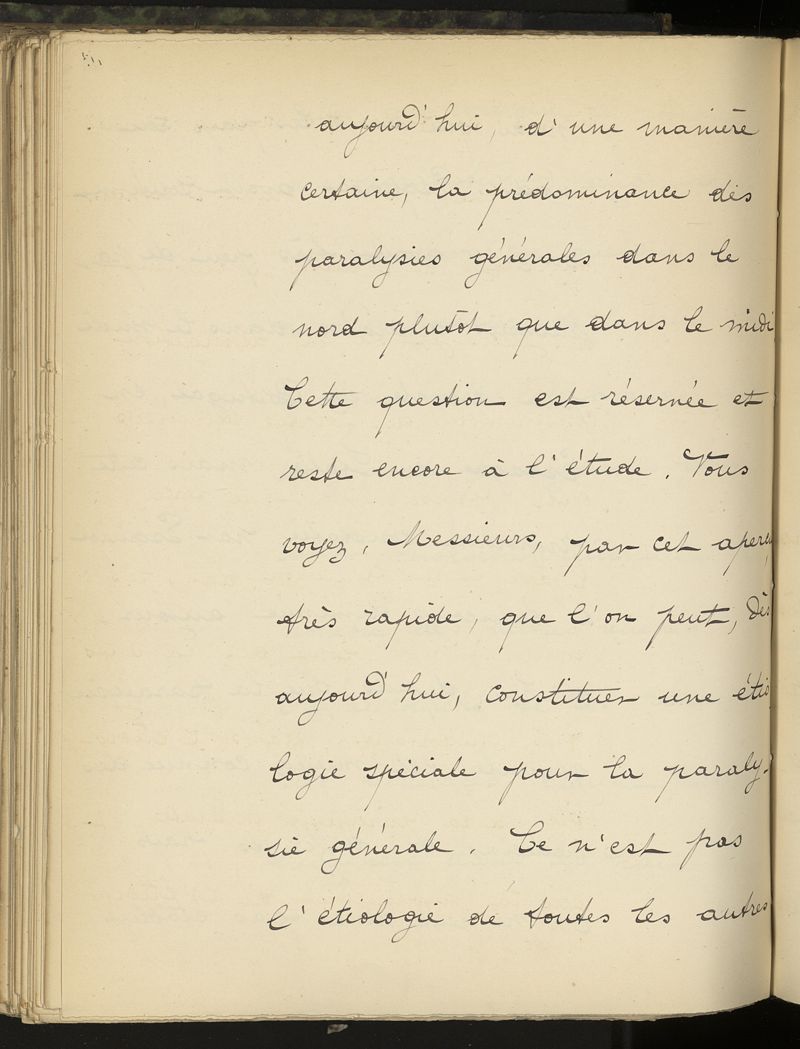 aujourd'hui, d'une manière
certaine, la prédominance des
paralysies générales dans le
nord plutôt que dans le midi
Cette question est réservée et
reste encore à l'étude. Vous
voyez, Messieurs, par cet aperçu
très rapide, que l'on peut, dès
aujourd'hui, constituer une étio
logie spéciale pour la paraly-
sie générale. Ce n'est pas
l'étiologie de toutes les autres